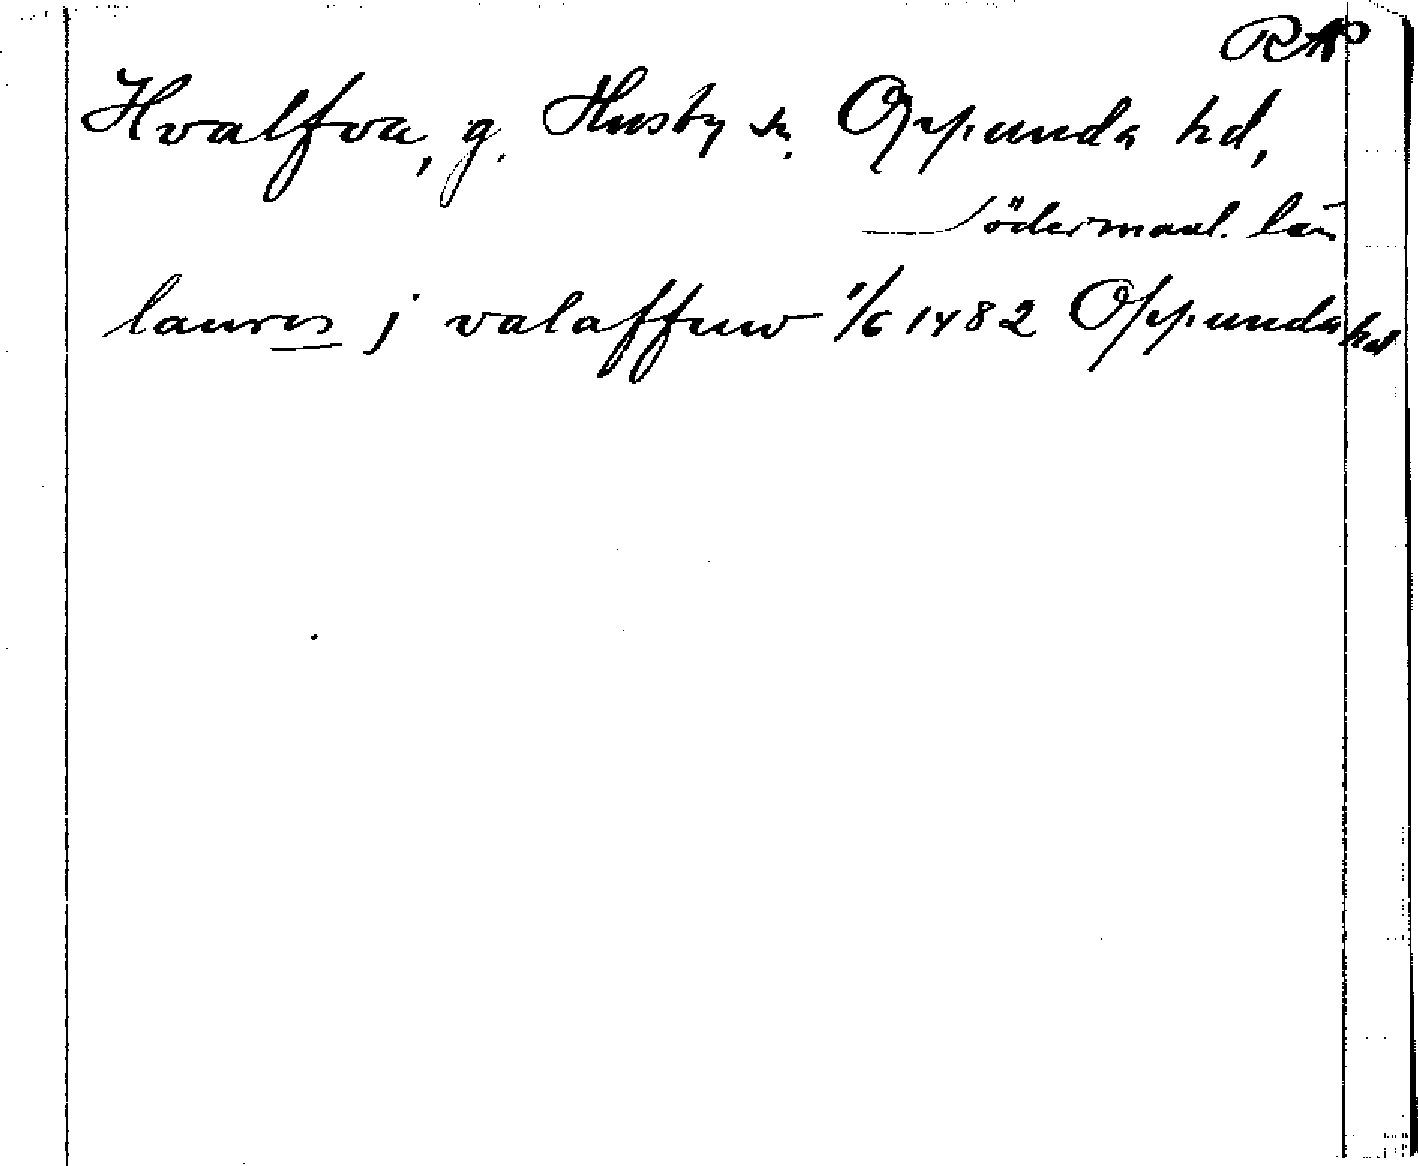 RAP
Hvalfva, g. Husby sn. Oppunda hd,
Södermanl. län
laures j valaffuw 1/6 1482 Oppunda hd